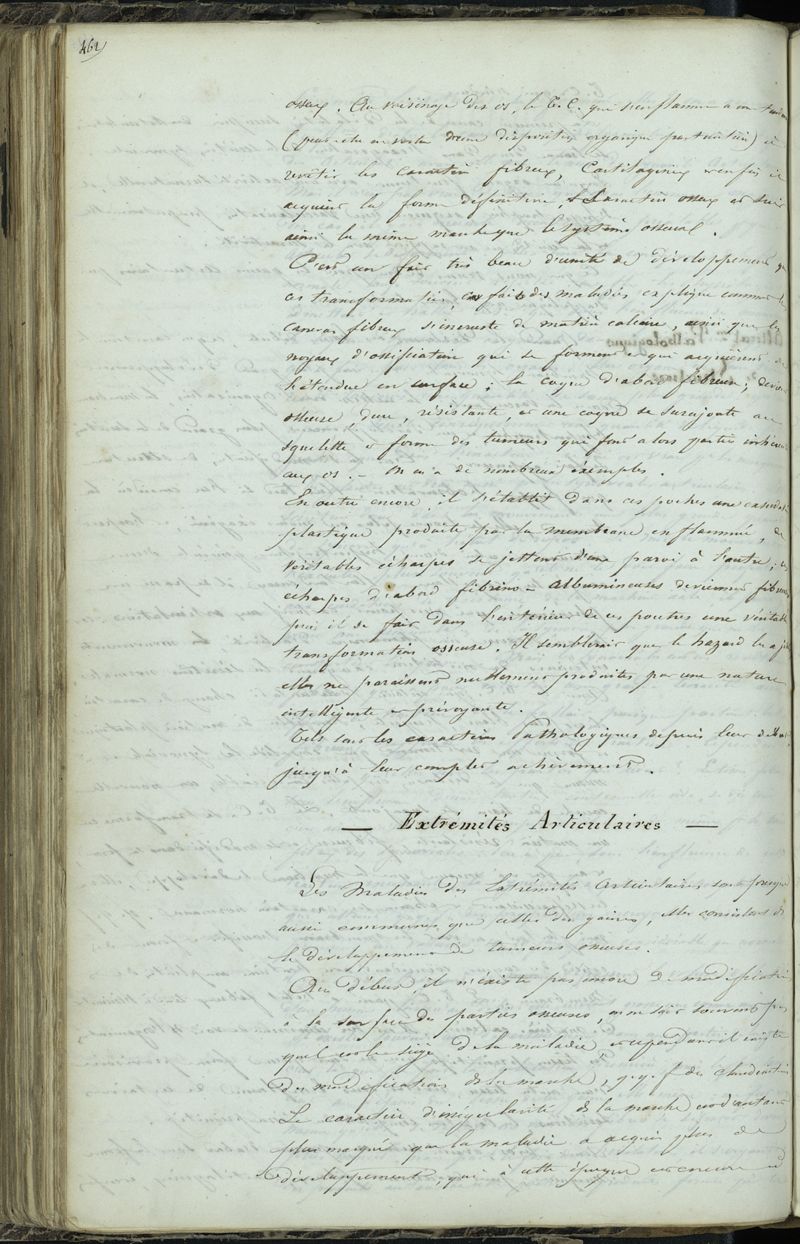 462
osseux. Au voisinage des os, le T. C. qui s'enflamme a une
(peut-être en vertu d'une disposition organique particulière) à
revêtir les caractères fibreux, Cartilagineux et enfin il
acquiert la forme définitive, le Caractère osseux et suit
ainsi la même marche que le système osseux.
C'est un fait très beau d'unité de développement que
ces transformations, ces faits des maladies expliquent comment le
canevas fibreux s'incruste de matière calcaire, ainsi que les
noyaux d'ossification qui se forment et qui acquièrent de
l'étendue en surface ; la coque d'abord fibreuse, devient
osseuse, dure, résistante, et une coque se surajoute au
squelette et forme des tumeurs qui font alors partie
aux os. — On en a de nombreux exemples.
En outre encore, il s'établit dans ces poches une
plastique produite par la membrane enflammée, de
véritables écharpes se jettent d'une paroi à l'autre ; les
écharpes d'abord fibrino-albumineuses deviennent fibreuses
puis il se fait dans l'intérieur de ces poutres une véritable
transformation osseuse. Il semblerait que le hazard les a
elles ne paraissent nullement produites par une nature
intelligente et prévoyante.
Tels sont les caractères Pathologiques depuis leur début
jusqu'à leur complet achèvement.
— Extrémités Articulaires —
Les Maladies des Extrémités articulaires sont presque
aussi communes que celles des gaines, elles consistent dans
le développement de tumeurs osseuses.
Au début, il n'existe pas encore de modification
à la surface des parties osseuses, on ne sait souvent pas
quel est le siège de la maladie et cependant il existe
des modifications de la marche, q. q. f. des claudications
Le caractère d'irrégularité de la marche est d'autant
plus marqué que la maladie a acquis plus de
développement, qui à cette époque est encore